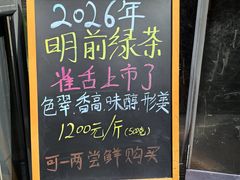 2026年
明前绿茶
雀舌上市了
色翠.香高.味醇.形美
1200元/斤(500g)
可一两尝鲜购买